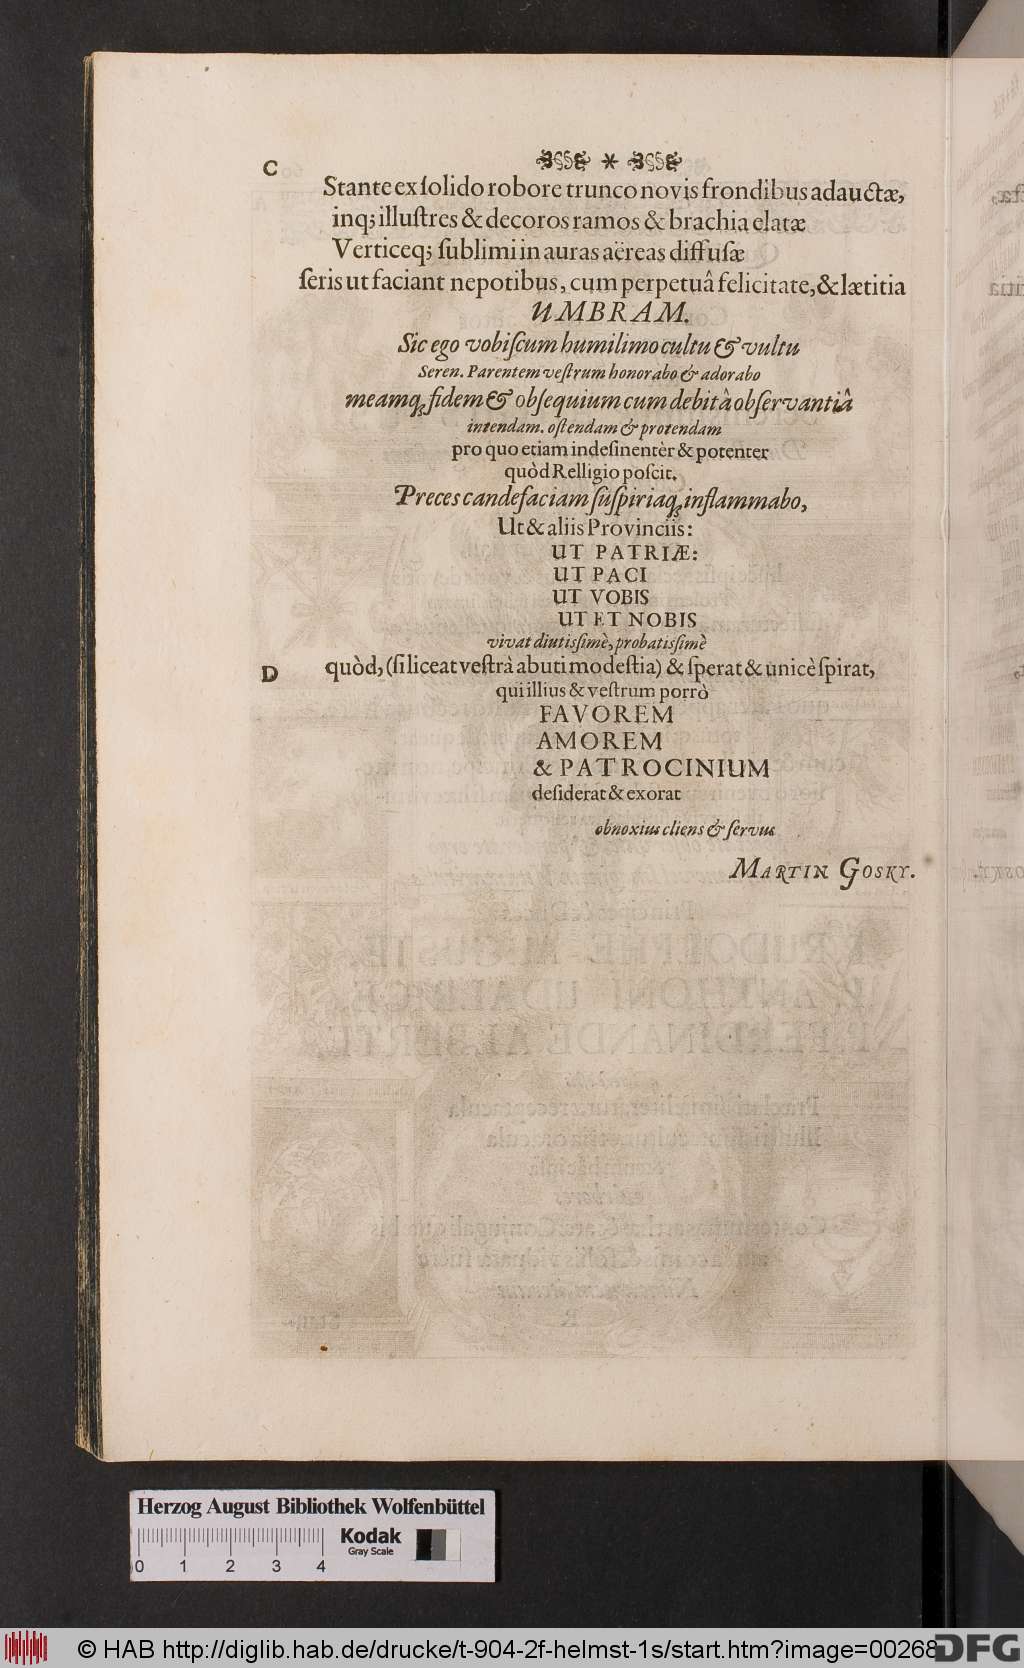 C
Stante ex ſolido robore trunco novis frondibus adauctæ,
inq; illuſtres & decoros ramos & brachia elatæ
Verticeq; ſublimi in auras aëreas diffuſæ
ſeris ut faciant nepotibus, cum perpetuâ felicitate, & lætitia
UMBRAM.
Sic ego vobiſcum humilimo cultu & vultu
Seren. Parentem veſtrum honorabo & adorabo
meamq; fidem & obſequium cum debitâ obſervantiâ
intendam. oſtendam & protendam
pro quo etiam indeſinentèr & potenter
quòd Relligio poſcit.
Preces candefaciam ſuſpiriaq; inflammabo,
Ut & aliis Provinciis:
UT PATRIÆ:
UT PACI
UT VOBIS
UT ET NOBIS
vivat diutiſſimè, probatiſſimè
D
quòd, (ſi liceat veſtrà abuti modeſtia) & ſperat & unicè ſpirat,
qui illius & veſtrum porrò
FAVOREM
AMOREM
& PATROCINIUM
deſiderat & exorat
obnoxius cliens & ſervus
MARTIN GOSKY.
Herzog August Bibliothek Wolfenbüttel
Kodak
Gray Scale
0 1 2 3 4
© HAB http://diglib.hab.de/drucke/t-904-2f-helmst-1s/start.htm?image=00268
DFG